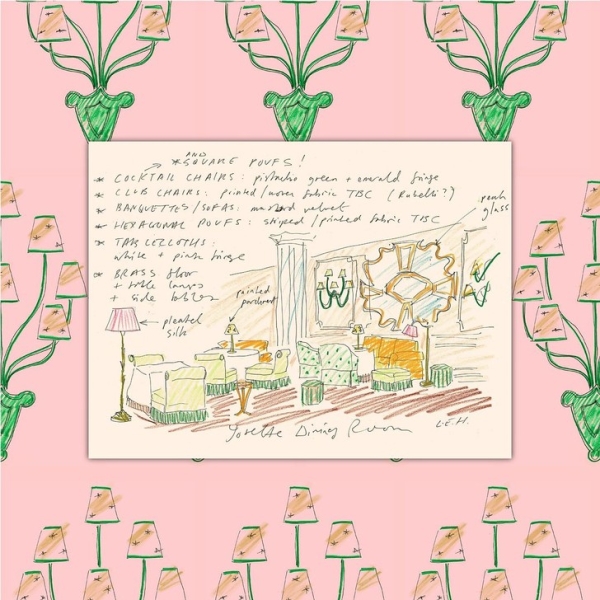 AND
* SQUARE POUFS!
* COCKTAIL CHAIRS: pistachio green + emerald fringe
* CLUB CHAIRS: printed/woven fabric TBC (Rubelli??)
* BANQUETTES/SOFAS: mustard velvet
* HEXAGONAL POUFS: striped/printed fabric TBC
* TABLECLOTHS:
white + pink fringe
* BRASS floor
+ table lamps
+ side tables
glass
painted
parchment
pleated
silk
Dining Room
L.E.H.